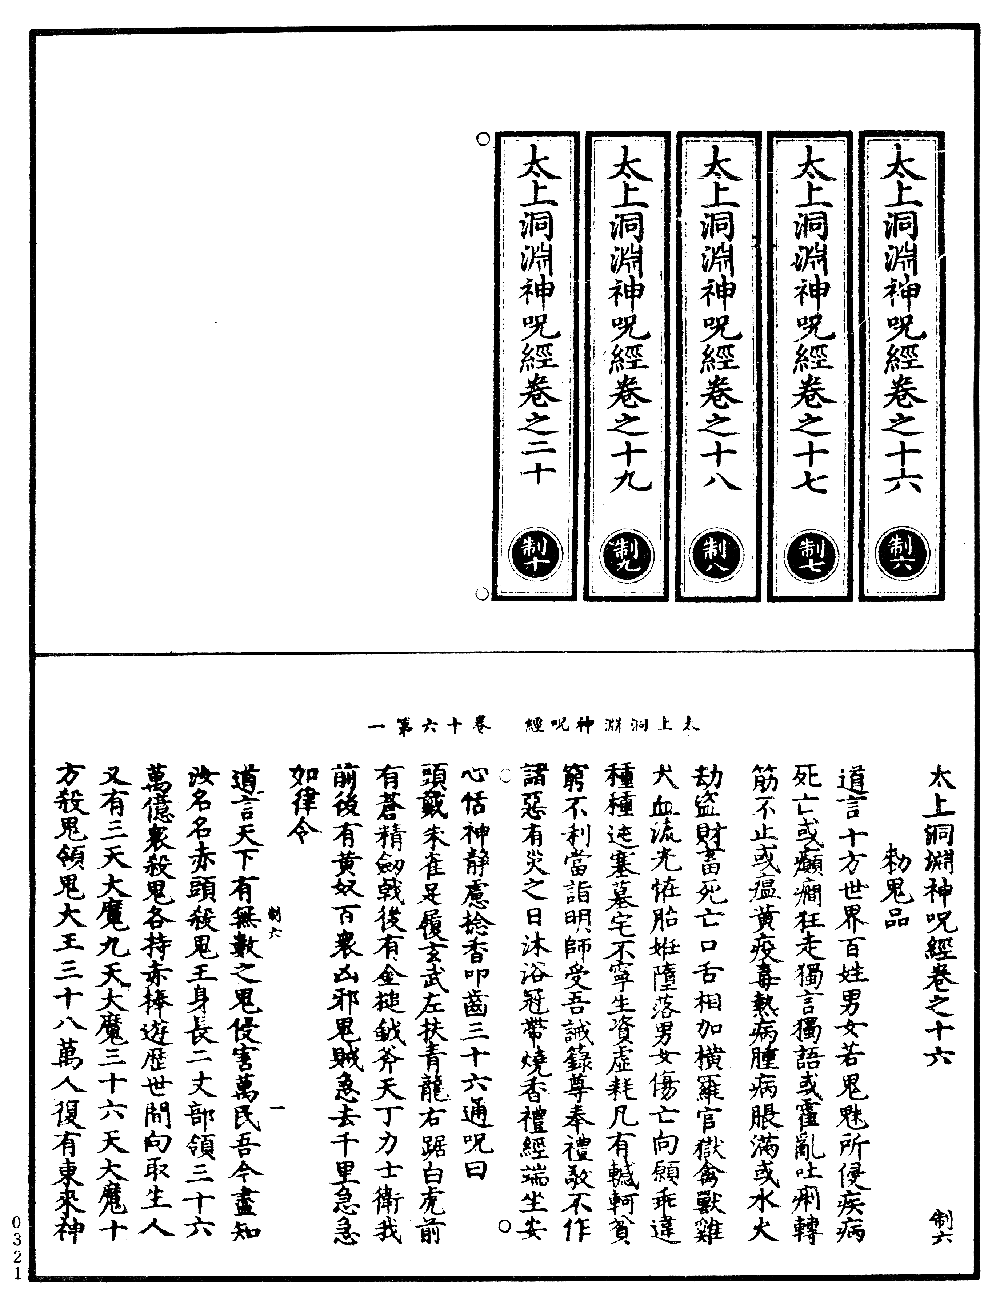 太上洞淵神呪經卷之十六
制六
太上洞淵神呪經卷之十七
制七
太上洞淵神呪經卷之十八
制八
太上洞淵神呪經卷之十九
制九
太上洞淵神呪經卷之二十
制十
太上洞淵神呪經 卷十六第一
太上洞淵神呪經卷之十六 制六
勑鬼品
道言十方世界百姓男女若鬼魅所侵疾病
死亡或癲癇狂走獨言獨語或霍亂吐痢轉
筋不止或瘟黃疫毒熱病腫病脹滿或水火
劫盜財畜死亡口舌相加橫羅官獄禽獸雞
犬血流光怪胎姙墮落男女傷亡向願乖違
種種迍塞墓宅不寧生資虛耗凡有轗軻貧
窮不利當詣明師受吾誡籙尊奉禮敬不作
諸惡有災之日沐浴冠帶燒香禮經端坐安
心恬神靜慮捻香叩齒三十六通呪曰
頭戴朱雀足履玄武左扶青龍右踞白虎前
有蒼精劒戟後有金槌鉞斧天丁力士衛我
前後有黃奴百衆凶邪鬼賊急去千里急急
如律令
制六 一
道言天下有無數之鬼侵害萬民吾今盡知
汝名名赤頭殺鬼王身長二丈部領三十六
萬億衆殺鬼各持赤棒遊歷世間向取生人
又有三天大魔九天大魔三十六天大魔十
方殺鬼領鬼大王三十八萬人復有東來神
0321